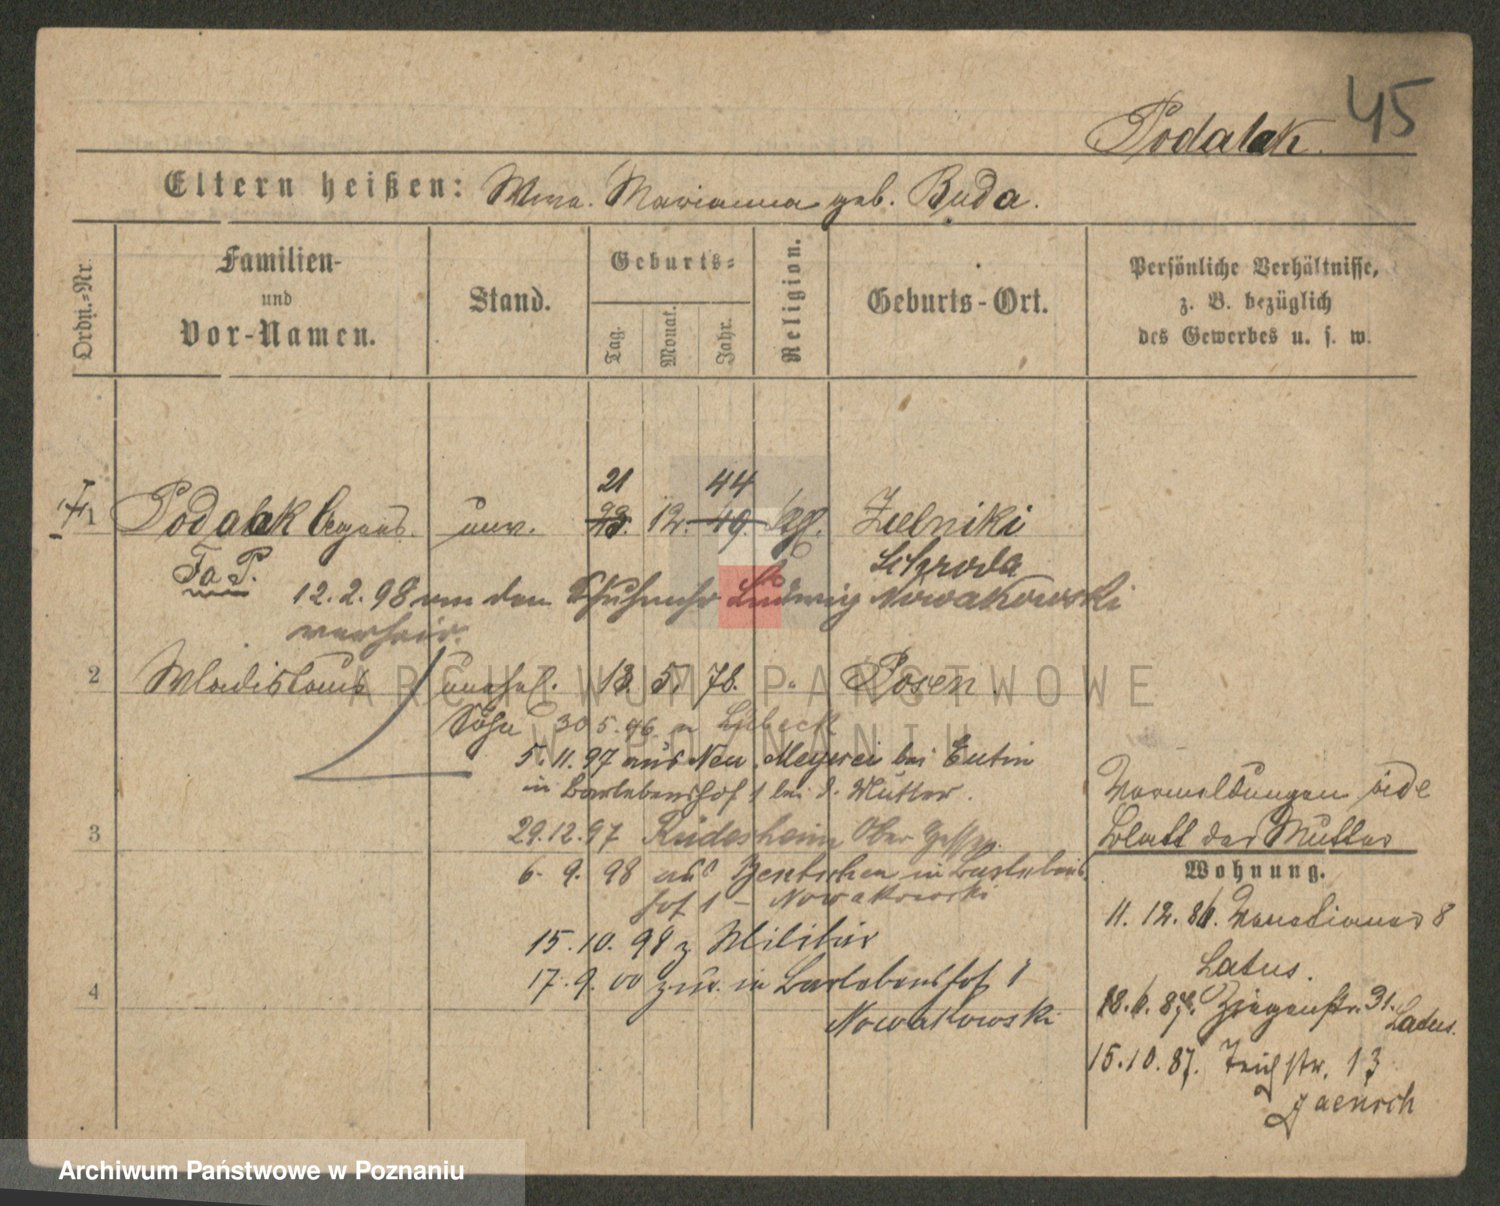 45
Podalak.
Eltern heißen: Wwe. Marianna geb. Buda.
Ordn.-Nr.
Familien-
und
Vor-Namen.
Stand.
Geburts-
Tag.
Monat.
Jahr.
Religion.
Geburts-Ort.
Persönliche Verhältnisse,
z. B. bezüglich
des Gewerbes u. s. w.
21 44
1 Podalak Agnes. unv. 23. 12. 49. Zielniki
Schroda
12.2.98 von den Ludwig Nowakowski
verheir.
2 Wladislaus unehel. 13. 5. 78. " Posen.
Sohn 30.5.96. n Lübeck
5.11.97 aus Neu Meyerei bei Eutin
in Bartlebenshof 1 bei d. Mutter.
3 29.12.97 Rüdesheim Ober
6.9.98 aus Bentschen in Bartlebens
hof 1 - Nowakowski
15.10.98 z Militär
4 17.9.00 zur. in Bartlebenshof 1
Nowakowski
Vormeldungen vide
Blatt der Mutter
Wohnung.
11.12.86. Venetianer 8
Latus.
18.6.87. Ziegenstr. 31.
Latus.
15.10.87. Teichstr. 13
Jaensch
ARCHIWUM PAŃSTWOWE
W POZNANIU
Archiwum Państwowe w Poznaniu